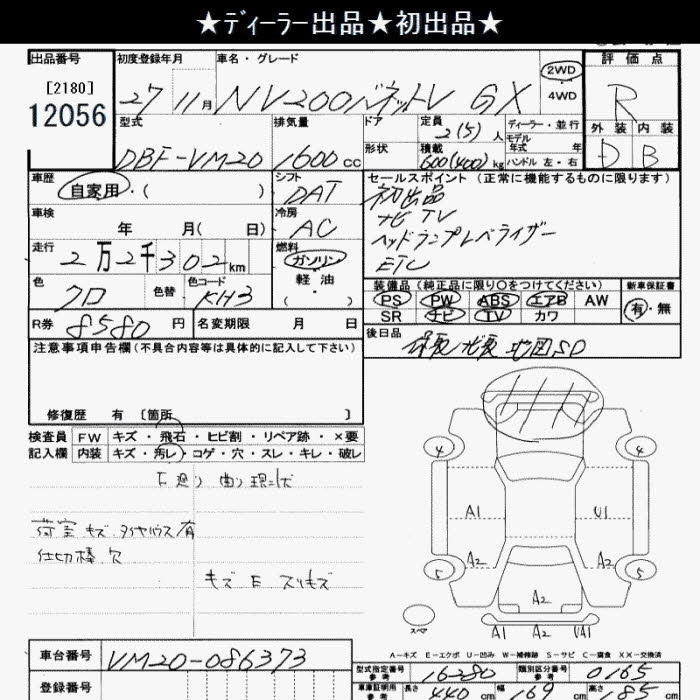 ★ディーラー出品★初出品★
出品番号 初度登録年月 車名・グレード 2WD 評価点
[2180] 27 11月 NV200バネットV GX 4WD R
12056 型式 排気量 ドア 定員 2(5)人 ディーラー・並行 外装 内装
モデル
年式 年
DBF-VM20 1600cc 形状 積載 600(400)kg ハンドル 左・右 D B
車歴 シフト セールスポイント(正常に機能するものに限ります)
自家用・( ) DAT 初出品
車検 冷房 ナビ TV
年 月( 日) AC ヘッドランプレベライザー
走行 燃料 ETC
2万2千302km ガソリン
色 色替 色コード 軽油 装備品(純正品に限り○をつけてください) 新車保証書
クロ KH3 ( ) PS PW ABS エアB AW 有・無
SR ナビ TV カワ
R券 8580円 名変期限 月 日 後日品
注意事項申告欄(不具合内容等は具体的に記入して下さい) 保取 ナビ取 地図SD
修復歴 有 [箇所 ]
検査員 FW キズ・飛石・ヒビ割・リペア跡・×要
記入欄 内装 キズ・汚レ・コゲ・穴・スレ・キレ・破レ
4 4
荷室キズ タイヤハウス有 A1 U1
仕切棒欠 A2 A2
キズE スリキズ 5 5
A2
スペア
A1 A2 UA1
A－キズ E－エクボ U－凹み W－補修跡 S－サビ C－腐食 XX－交換済
車台番号 VM20-086373 型式指定番号 16280 類別区分番号 0165
参考 参考
登録番号 車庫証明用 長さ 440cm 幅 169cm 高さ 185cm
参考